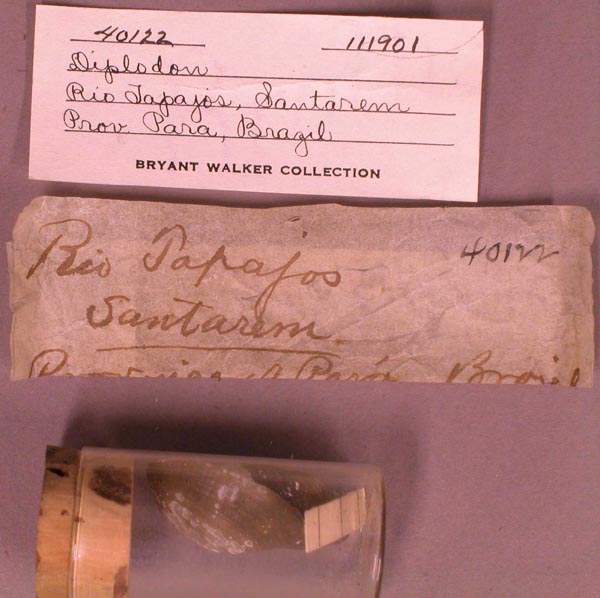 40122 111901
Diplodon
Rio Tapajos, Santarem
Prov. Para, Brazil
BRYANT WALKER COLLECTION
Rio Tapajos 40122
Santarem
Province of Pará Brazil